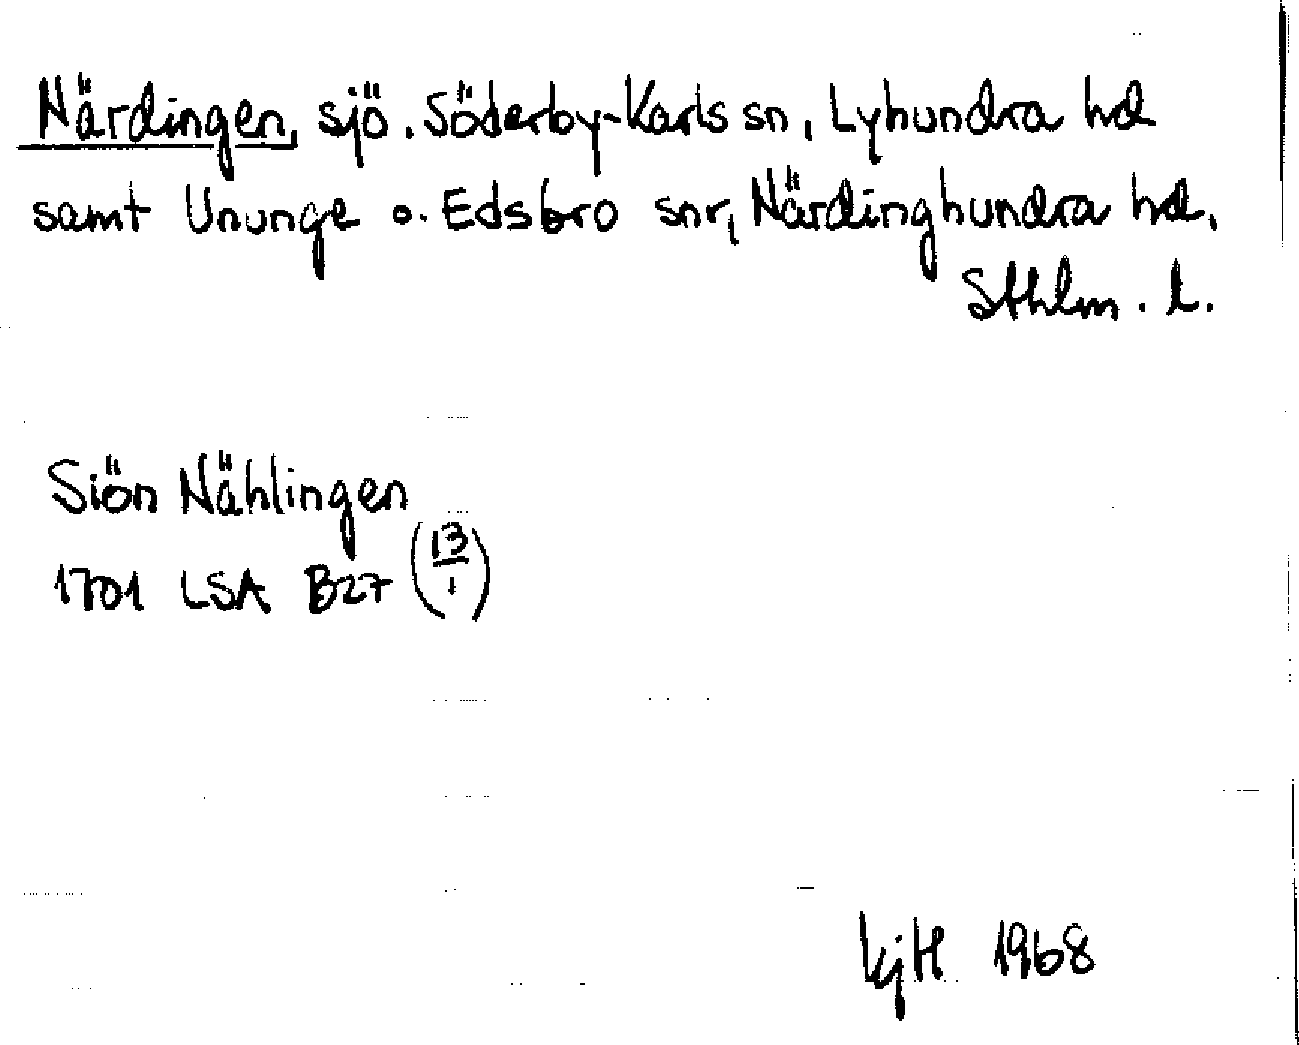 Närdingen, sjö. Söderby-Karls sn, Lyhundra hd
samt Ununge o. Edsbro snr, Närdinghundra hd,
Sthlm. l.
Siön Nählingen
1701 LSA B27 (13/1)
KjH 1968